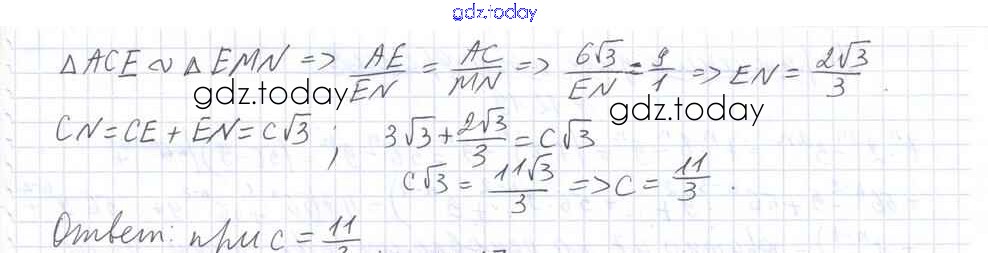 gdz.today
△ACE ∾ △EMN => AE/EN = AC/MN => 6√3/EN = 9/1 => EN = 2√3/3.
gdz.today gdz.today
CN = CE + EN = C√3 ; 3√3 + 2√3/3 = C√3
C√3 = 11√3/3 => C = 11/3.
Ответ: при C = 11/3